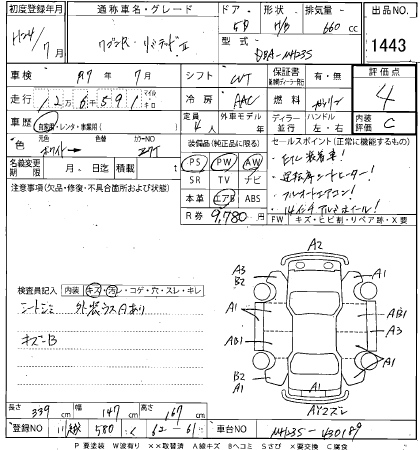 初度登録年月 通称車名・グレード ドア 形状 排気量 出品NO.
H24年 7月 ワゴンR・リミテッドⅡ 5D H/B 660 cc 1443
型式 DBA-MH23S
車検 R7年 7月 シフト CVT 保証書 有・無 評価点
走行 12万6591 マイル キロ 冷房 AAC 燃料 ガソリン 4
車歴 自家用・レンタ・事業用( ) 定員 4人 外車モデル 年 ディーラー 並行 ハンドル 左・右 内装評価 C
色 元色 ホワイト → 色替 カラーNO. Z7T
装備品(純正品に限る) セールスポイント(正常に機能するもの)
名義変更期限 月 日迄 積載 t
PS PW AW ・ETC装着車!
SR TV ナビ ・運転席シートヒーター!
注意事項(欠品・修復・不具合箇所および状態)
本革 エアB ABS ・フルオートエアコン!
・14インチアルミホイール!
R券 9,780 FW キズ・ヒビ割・リペア跡・X要
A2
A3 B2 A1
検査員記入 内装 キズ・汚レ・コゲ・穴・スレ・キレ
シートシミ 外装うすAあり
A1 A1
AB1 A3
キズ-B AB1
B2 A2 A1
A1
長さ 339cm 幅 147cm 高さ 167cm
登録NO 川越 580 62-61 車台NO MH23S-430189
P 要塗装 W波有り ××取替済 A線キズ Bヘコミ Sさび ×要交換 C腐食